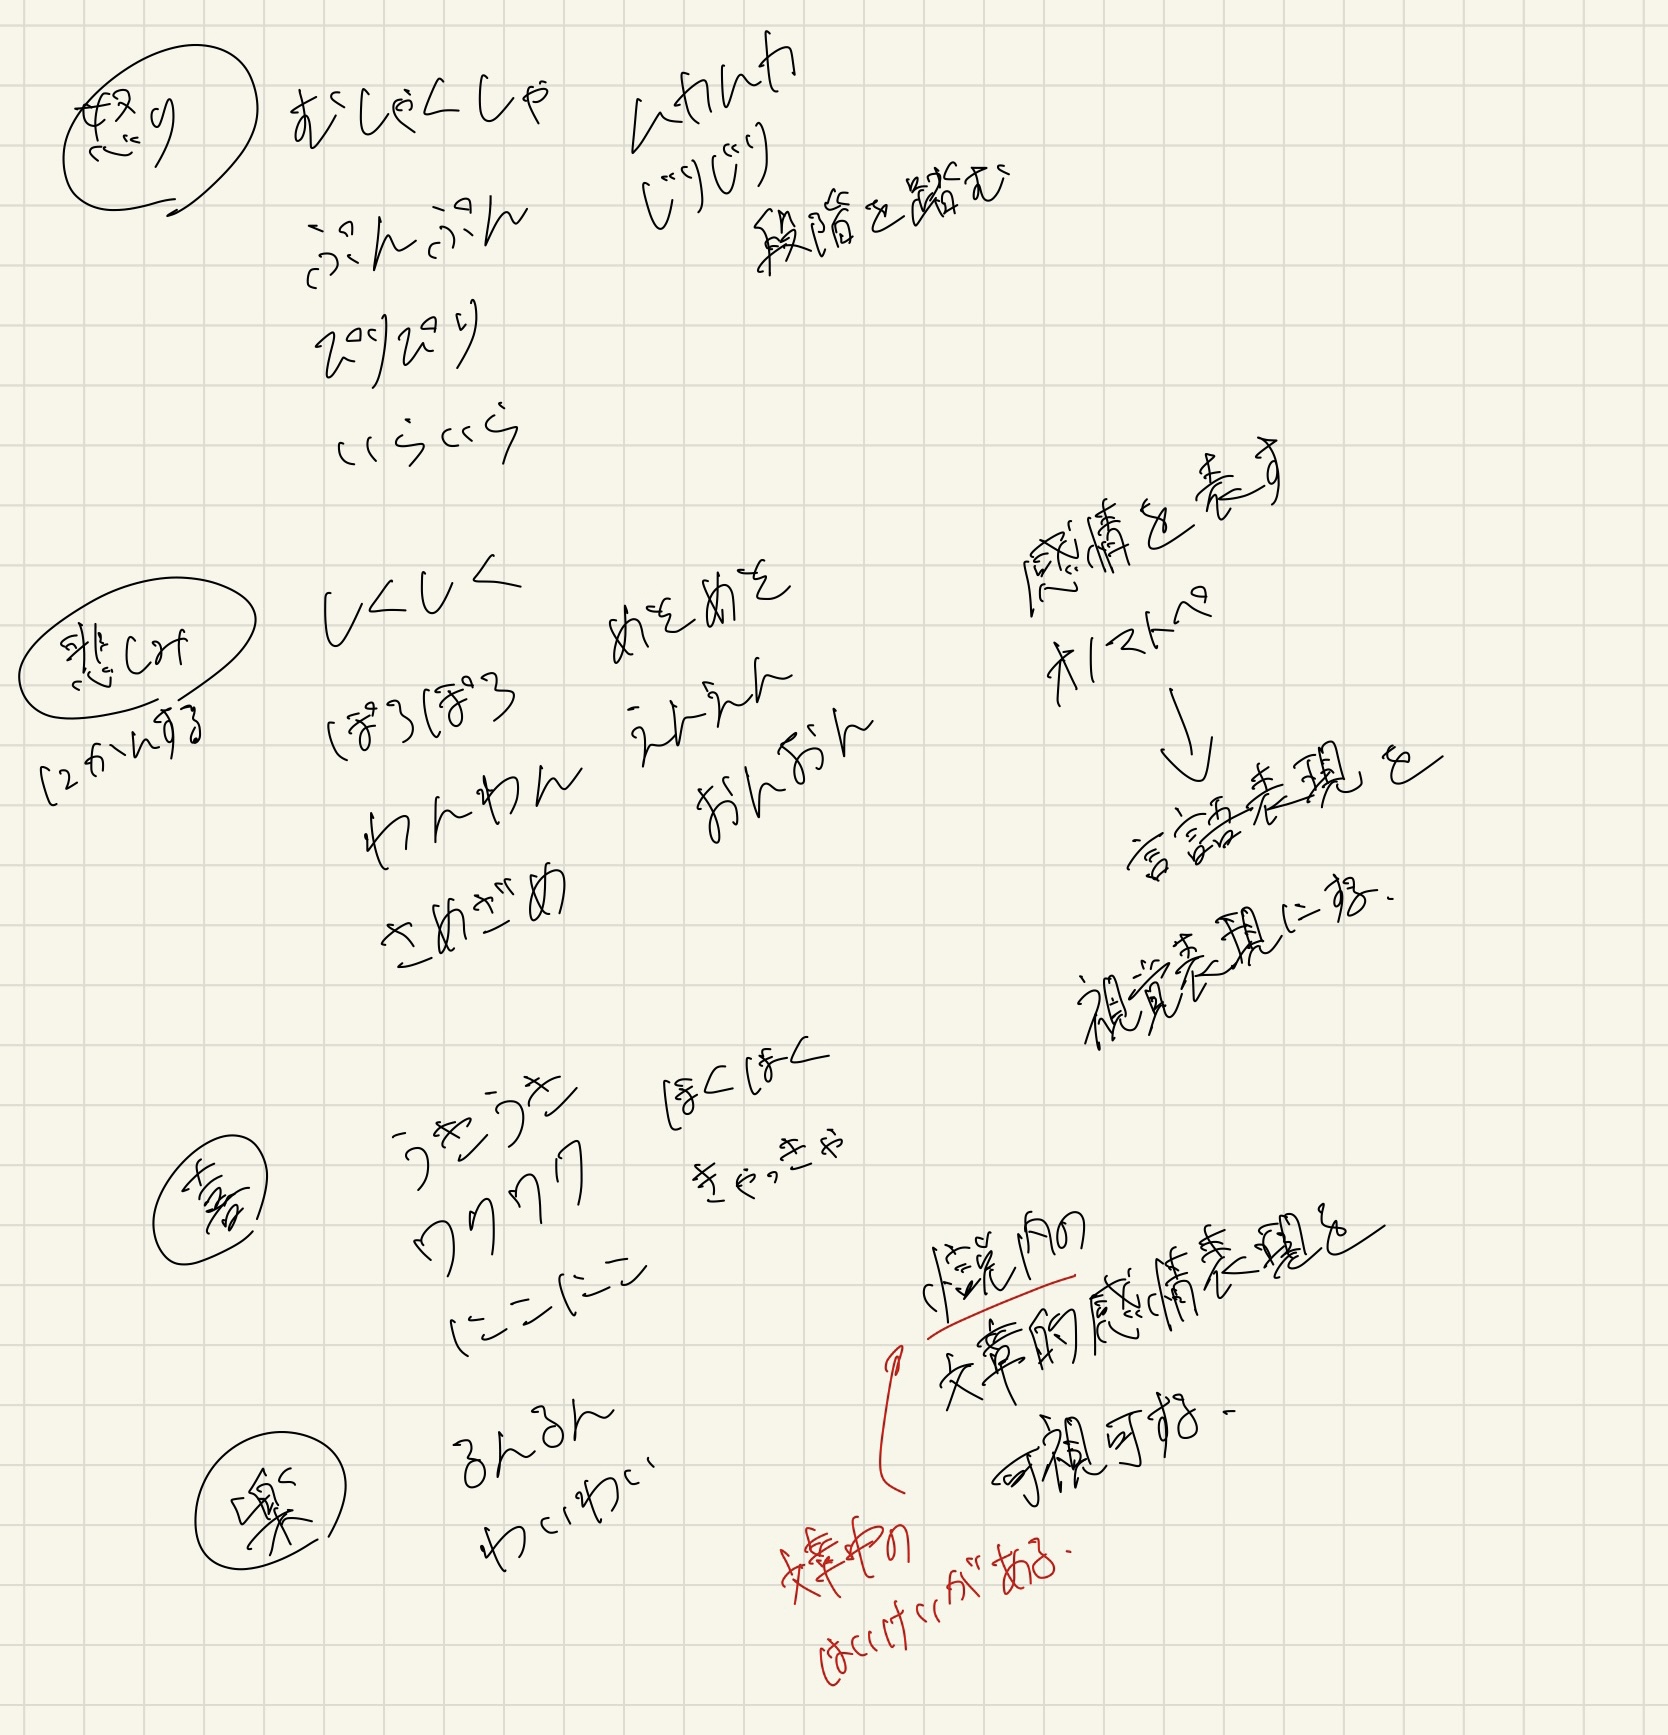 怒り
むしゃくしゃ
ぷんぷん
ぴりぴり
いらいら
じりじり
段階を踏む
悲しみ
しくしく
ぽろぽろ
わんわん
さめざめ
めそめそ
えんえん
おんおん
感情を表す
オノマトペ
言語表現を
視覚表現にする.
喜
うきうき
ワクワク
にこにこ
ほくほく
きゃっきゃ
楽
るんるん
わいわい
小説内の
文章的感情表現を
可視可する.
文章中の
はいけいがある.